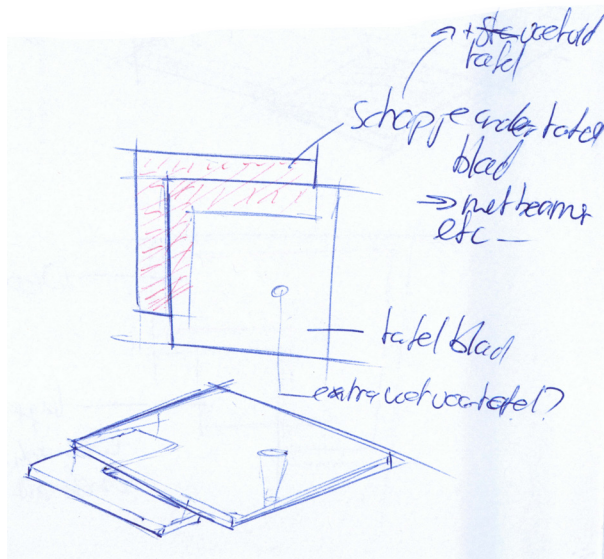 + voet v/d
tafel
schapje onder tafel
blad
→ met beamer
etc
tafelblad
extra voet voor tafel!?